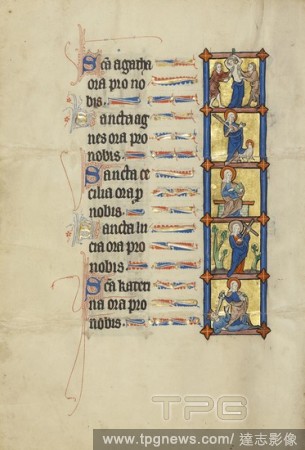 Scā agatha
ora pro no
bis.
Sancta ag
nes ora pro
nobis.
Sancta ce
cilia ora p
nobis.
Sancta lu
cia ora pro
nobis.
Scā kateri
na ora pro
nobis.
TPG
www.tpgnews.com/達志影像